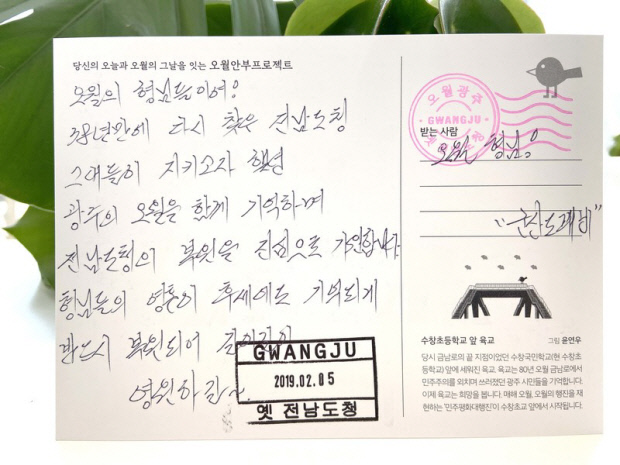 당신의 오늘과 오월의 그날을 잇는 오월안부프로젝트
오월의 형님들이여!
38년만에 다시 찾은 전남도청
그대들이 지키고자 했던
광주의 오월을 함께 기억하며
전남도청의 복원을 진심으로 기원합니다
형님들의 영혼이 후세에도 기억되게
반드시 복원되어 길이길이
영원하길~
오월광주
GWANGJU
받는 사람
오월 형님!
GWANGJU
2019.02.05
옛 전남도청
수창초등학교 앞 육교
그림 윤연우
당시 금남로의 끝 지점이었던 수창국민학교(현 수창초
등학교) 앞에 세워진 육교. 육교는 80년 오월 금남로에서
민주주의를 외치며 쓰러졌던 광주 시민들을 기억합니다.
이제 육교는 희망을 봅니다. 매해 오월, 오월의 행진을 재
현하는 '민주평화대행진'이 수창초교 앞에서 시작됩니다.